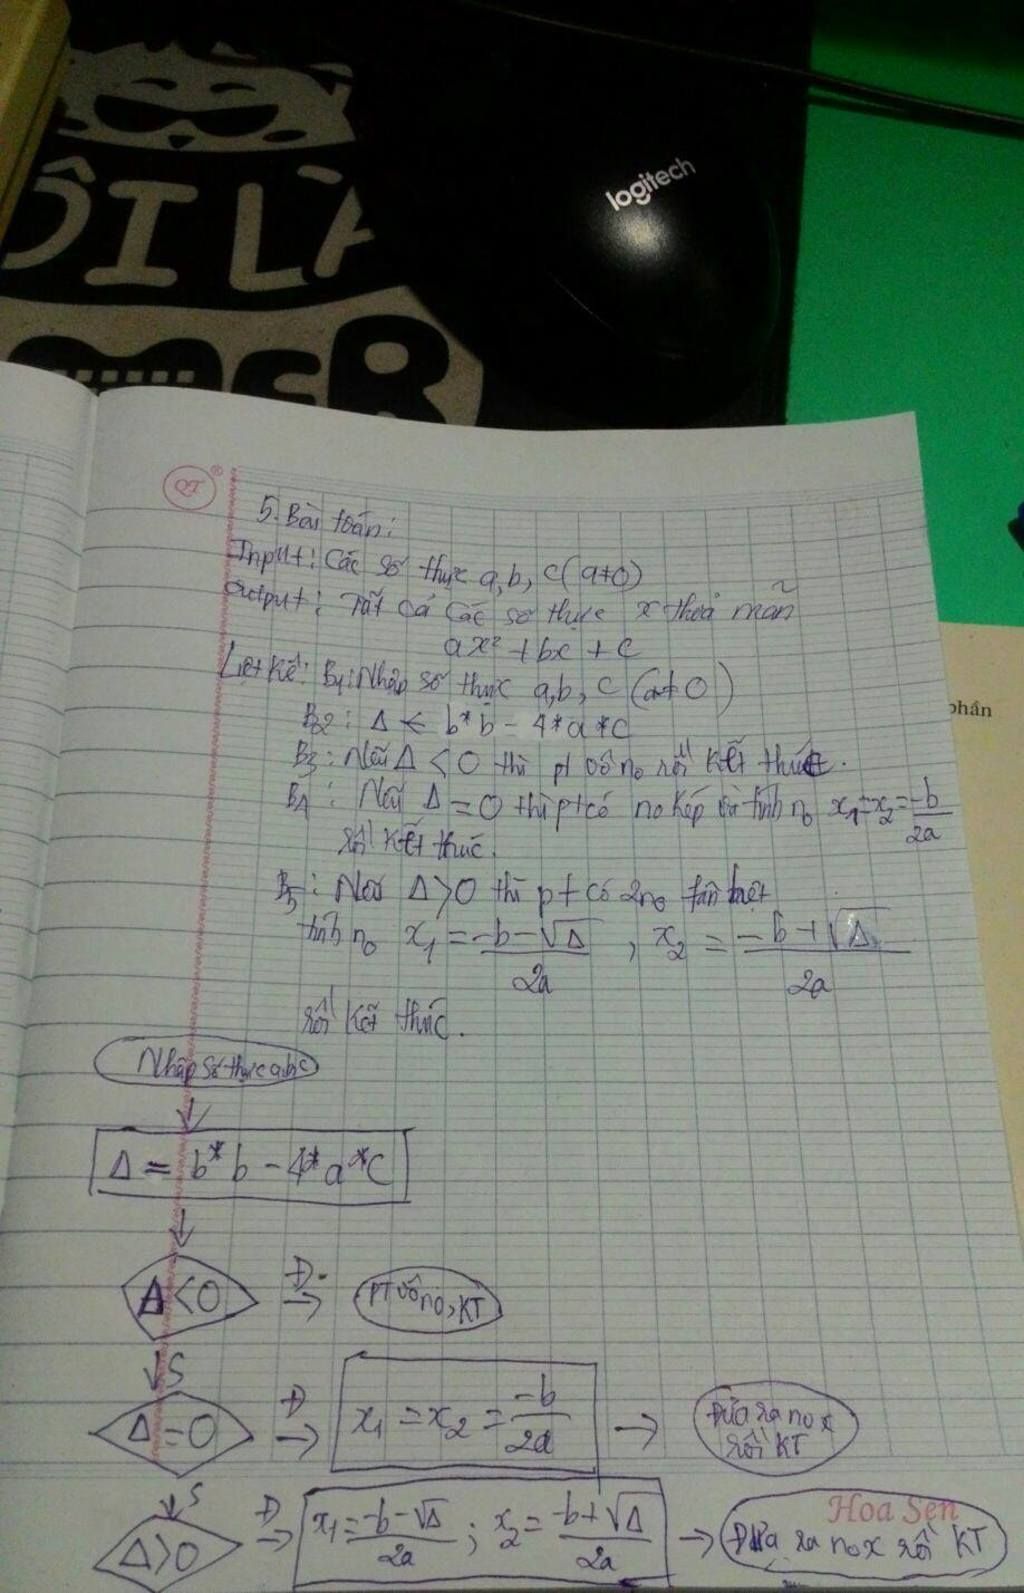 ÔI LÀ
MER
logitech
phần
QT
5. Bài toán:
Input: Các số thực a, b, c (a≠0)
Output: Tất cả các số thực x thoả mãn
ax² + bx + c
Liệt kê: B1: Nhập số thực a, b, c (a≠0)
B2: Δ ← b*b - 4*a*c
B3: Nếu Δ < 0 thì pt vô no rồi kết thúc.
B4: Nếu Δ = 0 thì pt có no kép và tính no x₁=x₂= -b/2a
rồi kết thúc.
B5: Nếu Δ > 0 thì pt có 2no biệt
tính no x₁ = -b-√Δ/2a , x₂ = -b+√Δ/2a
rồi kết thúc.
Nhập số thực a,b,c
Δ = b*b - 4*a*c
Δ<0 Đ. pt vô no, KT
S
Δ=0 Đ x₁ = x₂ = -b/2a Đưa ra no x
rồi KT
S Hoa Sen
Δ>0 Đ x₁= -b-√Δ/2a ; x₂= -b+√Δ/2a Đưa ra no x rồi KT